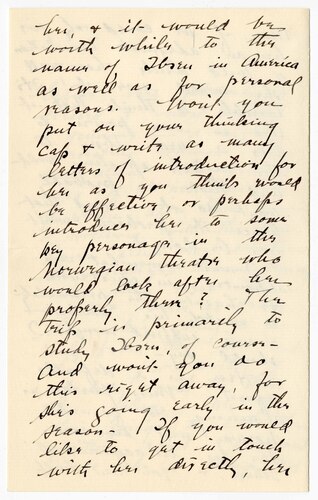 her, & it would be
worth while to the
name of Ibsen in America
as well as for personal
reasons. Won't you
put on your thinking
cap & write as many
letters of introduction for
her as you think would
be effective, or perhaps
introduce her to some
key personages in the
Norwegian theatre who
would look after her
properly there? The
trip is primarily to
study Ibsen, of course-
And won't you do
this right away, for
she's going early in the
season- If you would
like to get in touch
with her directly, her